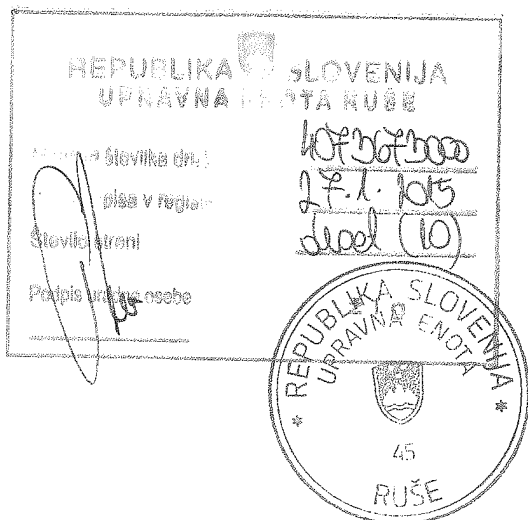 REPUBLIKA SLOVENIJA
UPRAVNA ENOTA RUŠE
številka
4073673000
vpisa v register
27.1.2015
Število strani
deset (10)
Podpis uradne osebe
REPUBLIKA SLOVENIJA
UPRAVNA ENOTA
45
RUŠE